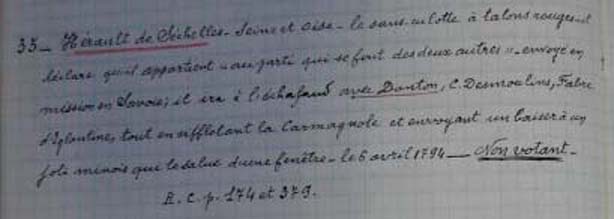 35 - Hérault de Séchelles - Seine et Oise - le sans culotte à talons rouges - il
déclare qu'il appartient "au parti qui se fout des deux autres" - envoyé en
mission en Savoie; il ira à l'échafaud avec Danton, C. Desmoulins, Fabre
d'Eglantine, tout en sifflotant la Carmagnole et envoyant un baiser à un
joli minois qui le salue d'une fenêtre - le 6 avril 1794 - Non votant -
R. C. p. 174 et 379.